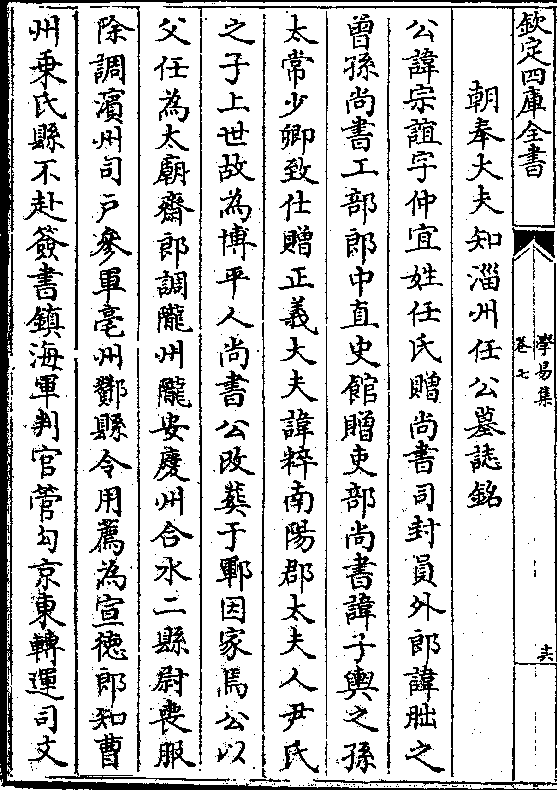 欽定四庫全書
學易集
卷七
朝奉大夫知淄州任公墓誌銘
公諱宗誼字仲宜姓任氏贈尚書司封員外郎諱朏之
曾孫尚書工部郎中直史館贈吏部尚書諱子輿之孫
太常少卿致仕贈正義大夫諱粹南陽郡太夫人尹氏
之子上世故為博平人尚書公改葬于鄆因家焉公以
父任為太廟齋郎調隴州隴安慶州合水二縣尉喪服
除調濱州司戶參軍亳州酇縣令用薦為宣徳郎知曹
州乗氏縣不赴簽書鎮海軍判官管勾京東轉運司文